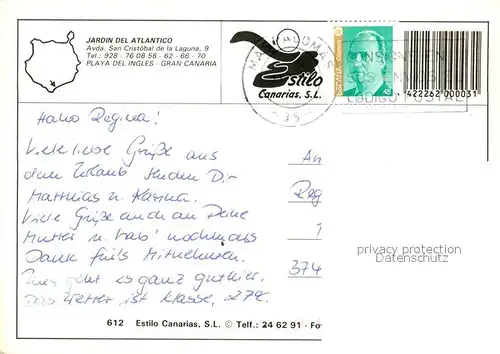 JARDIN DEL ATLANTICO
Avda. San Cristóbal de la Laguna, 9
Tel.: 928 - 76 08 58 - 62 - 66 - 70
PLAYA DEL INGLES - GRAN CANARIA
MASPALOMAS
35
Estilo
Canarias, S.L.
45
CODIGO POSTAL
422262 000031
Hallo Regina!
Viele liebe Grüße aus
dem Urlaub senden Dir
Matthias u. Karina.
Viele Grüße auch an Deine
Mutter u. hab' nochmals
Dank fürs Mitnehmen.
Uns geht es ganz gut hier.
Das Wetter ist klasse, 27°C.
An
Reg
374
privacy protection
Datenschutz
612 Estilo Canarias, S.L. © Telf.: 24 62 91 - Fo